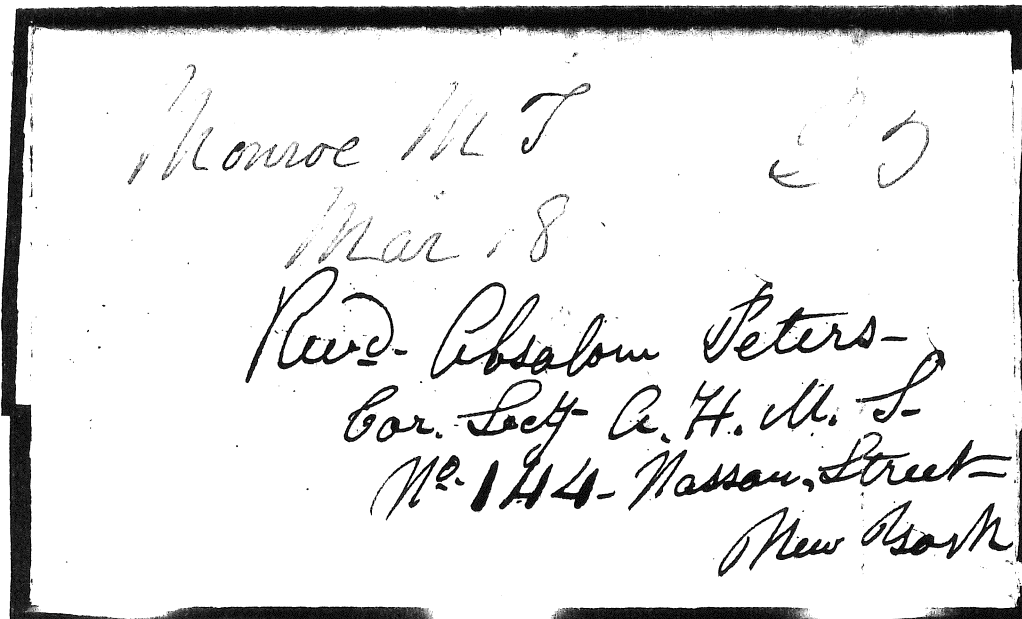 Monroe M T 25
Mar 18
Revd- Absalom Peters-
Cor. Secy- A. H. M. S-
No. 144- Nassau, Street-
New York